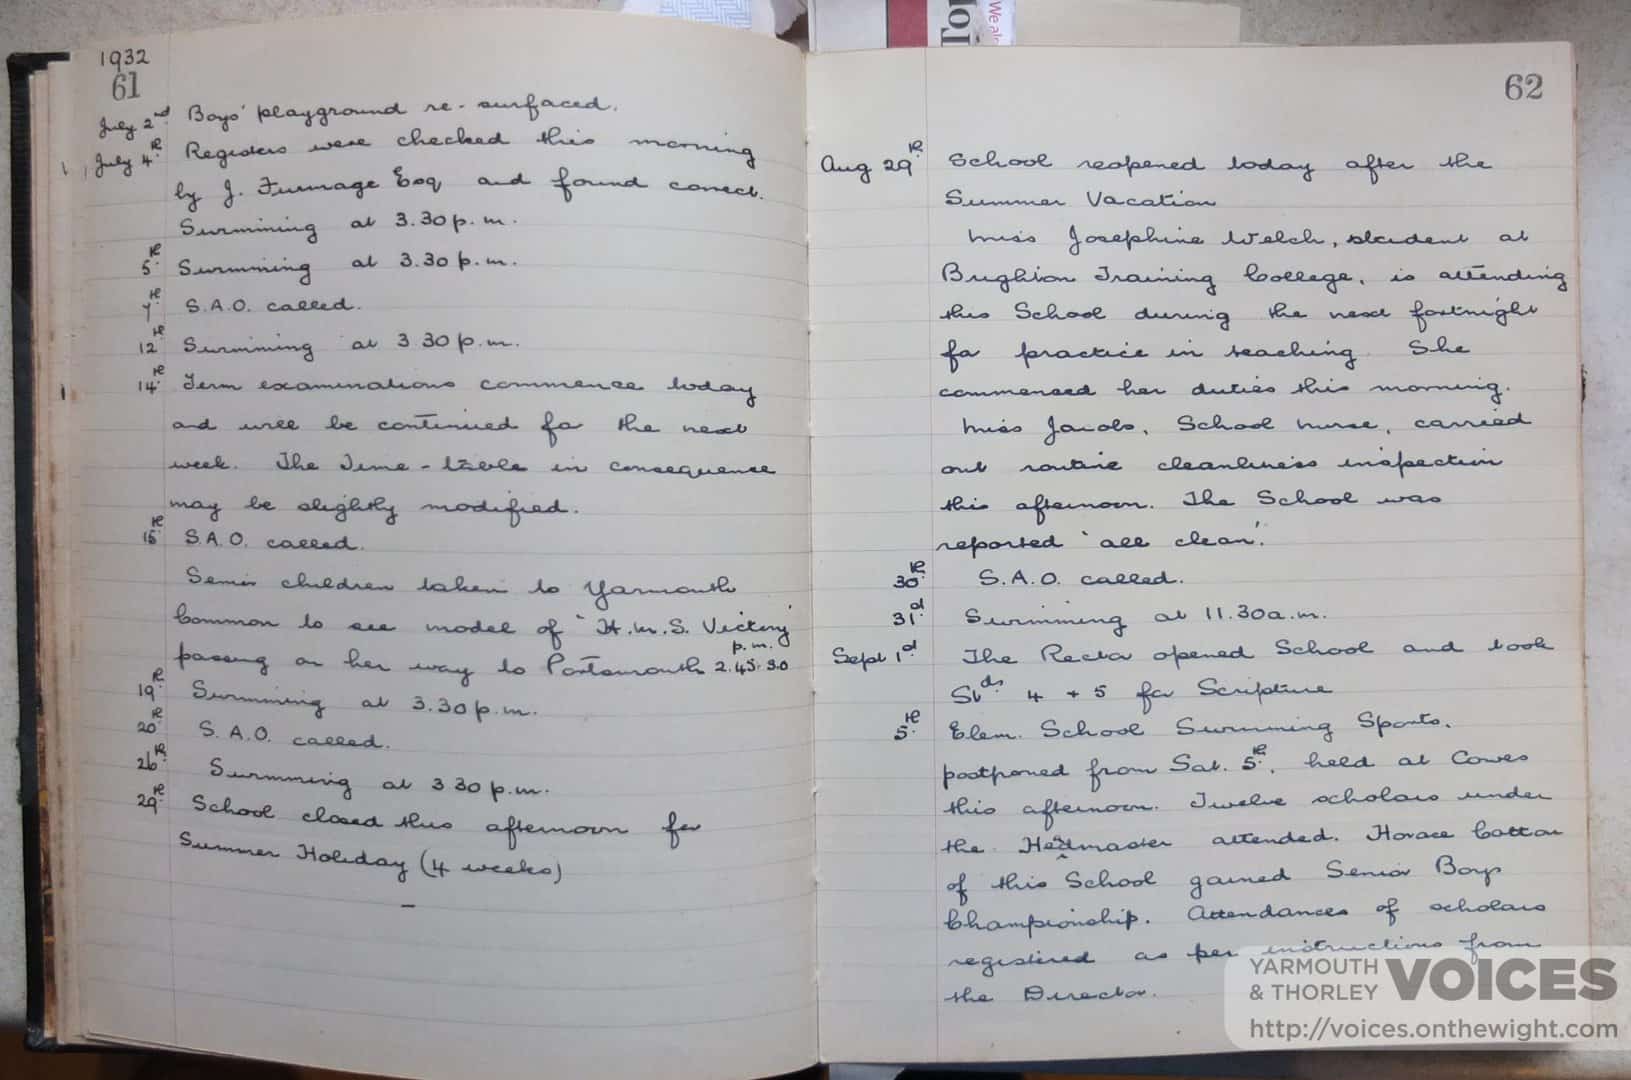 1932
61
July 2nd Boys' playground re-surfaced.
July 4th Registers were checked this morning
by J. Furmage Esq and found correct.
Swimming at 3.30 p.m.
5th Swimming at 3.30 p.m.
7th S.A.O. called.
12th Swimming at 3 30 p.m.
14th Term examinations commence today
and will be continued for the next
week. The Time-table in consequence
may be slightly modified.
15th S.A.O. called.
Senior children taken to Yarmouth
Common to see model of "H.M.S. Victory"
passing on her way to Portsmouth 2.45-3.0 p.m.
19th Swimming at 3.30 p.m.
20th S.A.O. called.
26th Swimming at 3 30 p.m.
29th School closed this afternoon for
Summer Holiday (4 weeks)
62
Aug 29th School reopened today after the
Summer Vacation
Miss Josephine Welch, student at
Brighton Training College, is attending
this School during the next fortnight
for practice in teaching. She
commenced her duties this morning.
Miss Jacobs, School Nurse, carried
out routine cleanliness inspection
this afternoon. The School was
reported 'all clean'.
30th S.A.O. called.
31st Swimming at 11.30 a.m.
Sept 1st The Rector opened School and took
Stds 4 + 5 for Scripture
5th Elem. School Swimming Sports,
postponed from Sat. 5th, held at Cowes
this afternoon. Twelve scholars under
the Headmaster attended. Horace Cotton
of this School gained Senior Boys
Championship. Attendances of scholars
registered as per instructions from
the Director.
YARMOUTH & THORLEY VOICES
http://voices.onthewight.com